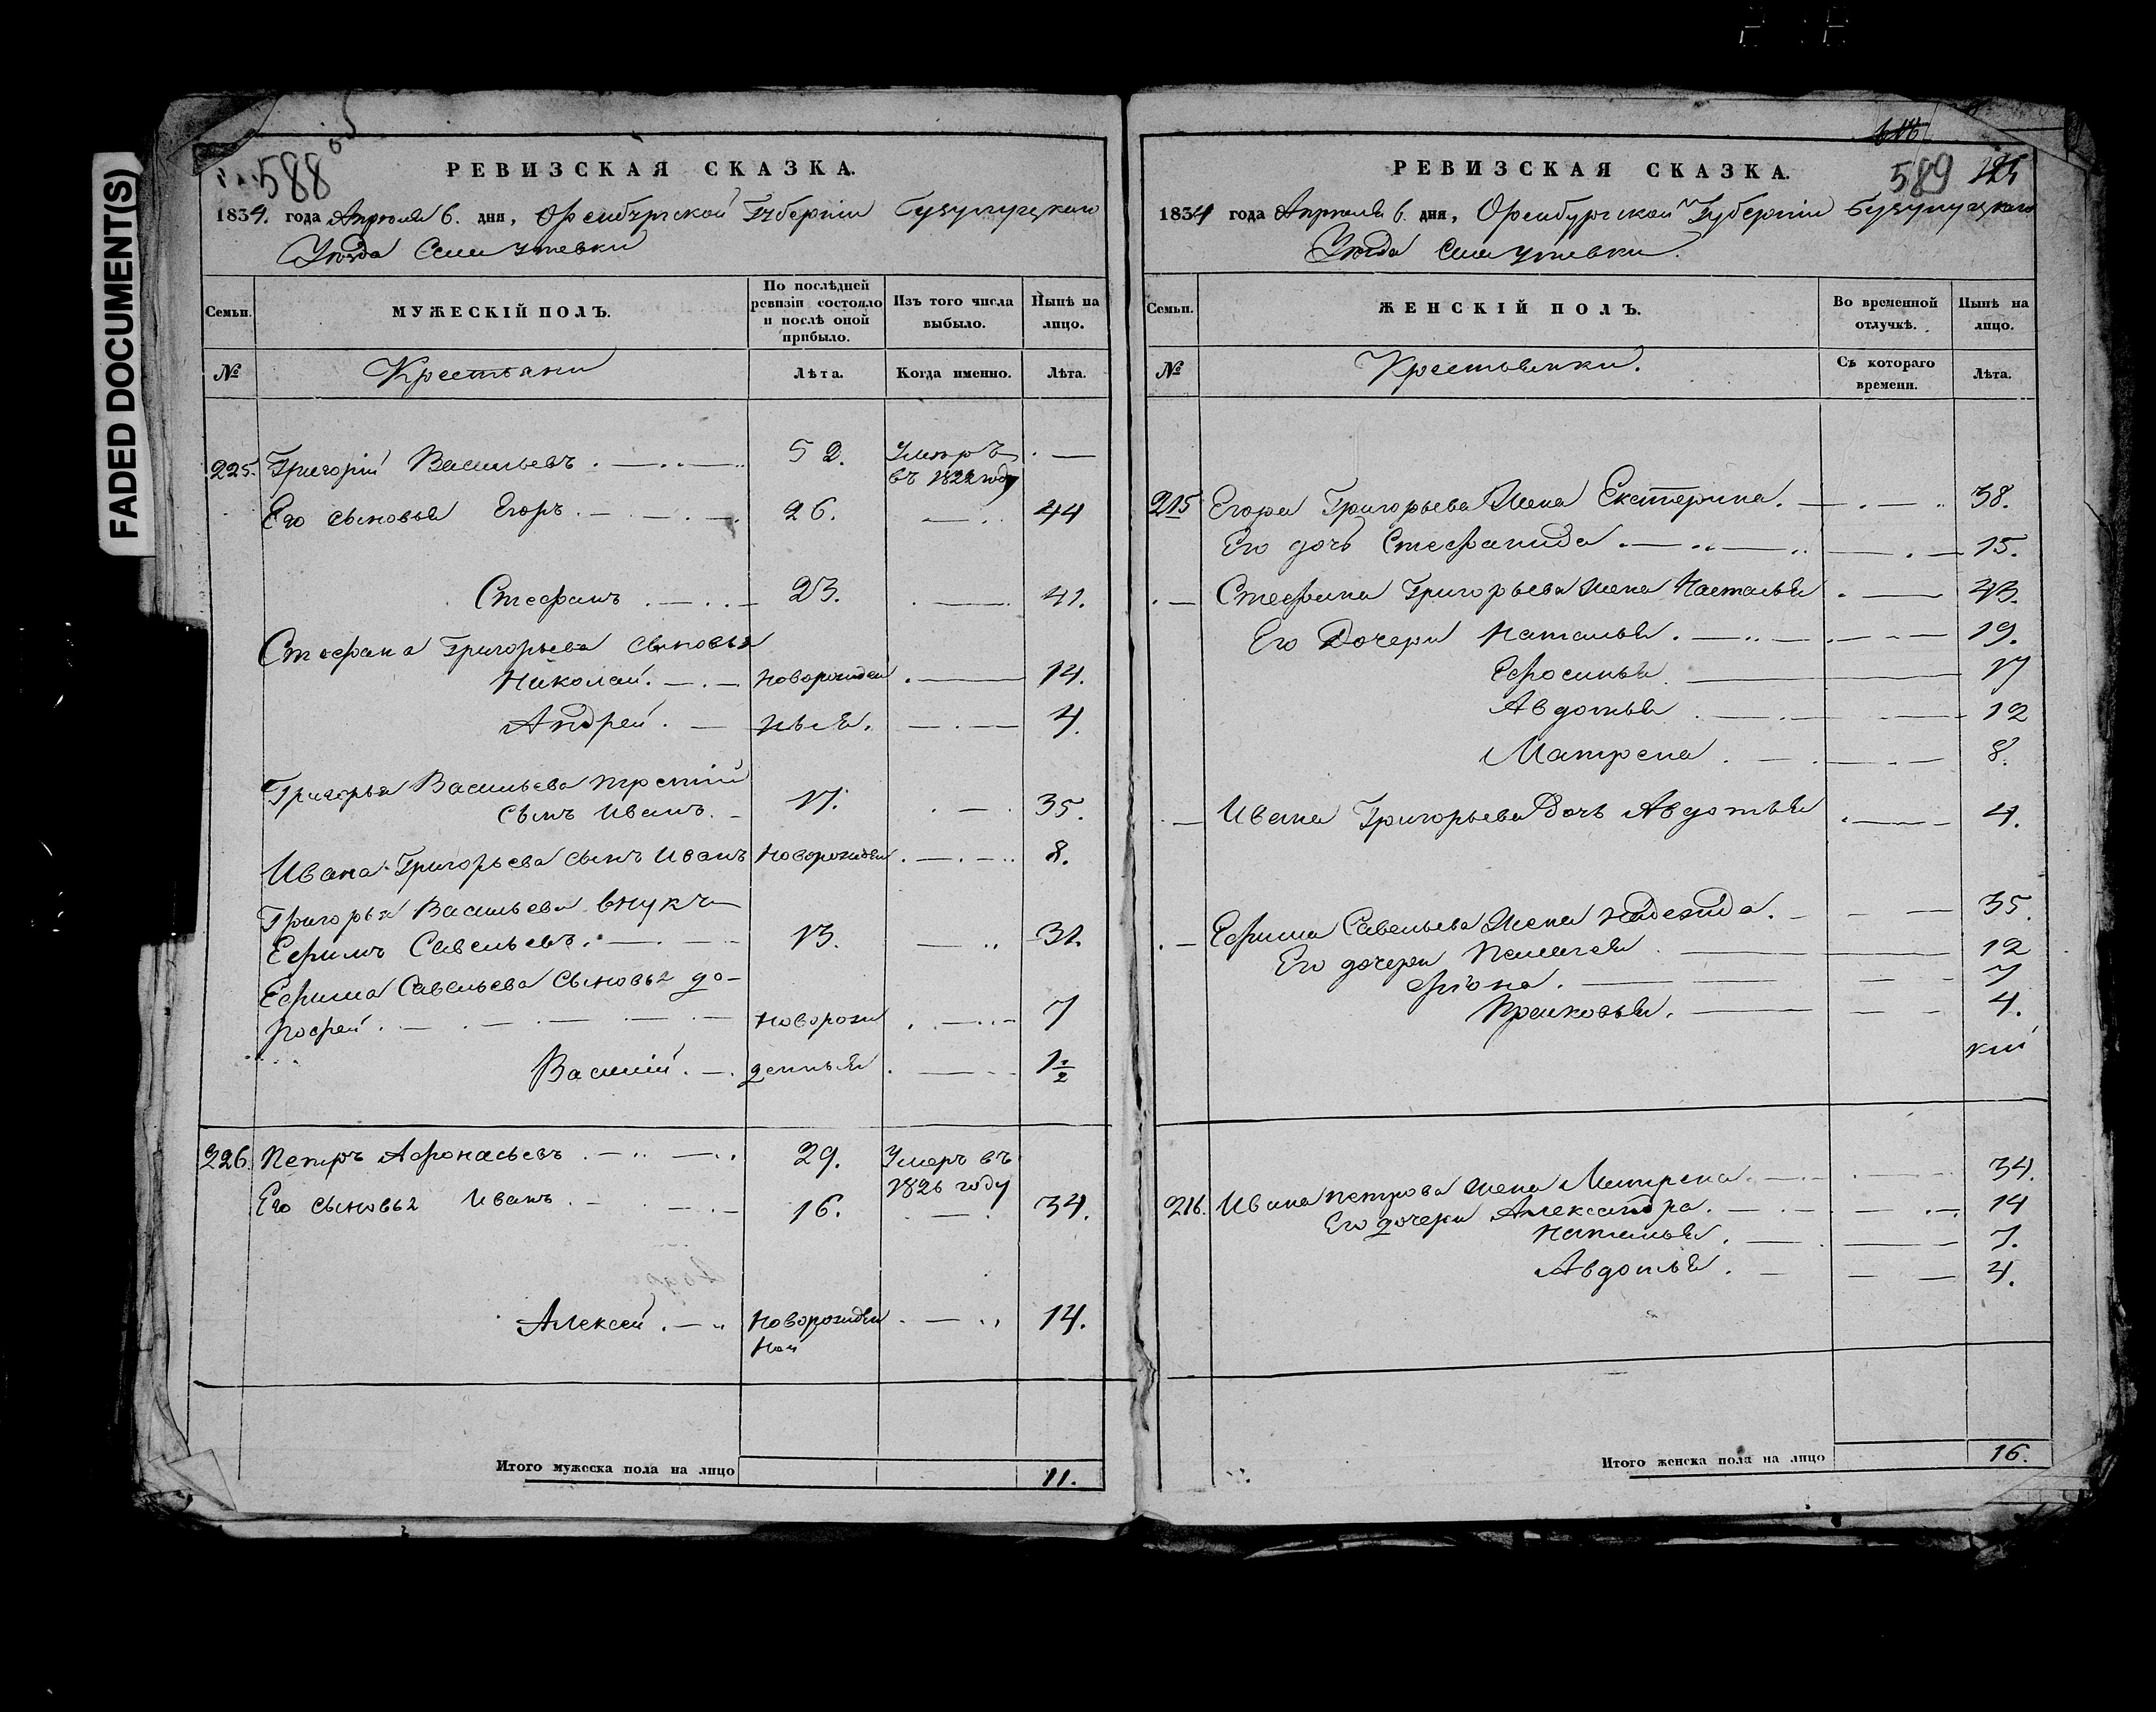 FADED DOCUMENT(S)
588
РЕВИЗСКАЯ СКАЗКА.
1834. года Апреля 6. дня, Оренбургской Губернiи Бузулуцкаго
Уѣзда Села Утевки
Семьи.
МУЖЕСКIЙ ПОЛЪ.
По послѣдней ревизiи состояло и послѣ оной прибыло.
Изъ того числа выбыло.
Нынѣ на лицо.
№
Крестьяни
Лѣта.
Когда именно.
Лѣта.
225. Григорiй Васильевъ 52. Умеръ въ 1822 году —
Его сыновья Егоръ 26. — 44
Стефанъ 23. — 41.
Стефана Григорьева сыновья
Николай. новорожден 14.
Андрей. ныя. 4.
Григорья Васильева третiй
сынъ Иванъ. 17. — 35.
Ивана Григорьева сынъ Иванъ новорожден 8.
Григорья Васильева внукъ
Ефимъ Савельевъ. 13. — 31.
Ефима Савельева сыновья до-
рофей. новорож 7
Василiй. денныя 1 1/2
226. Петръ Афонасьевъ 29. Умеръ въ 1826 году
Его сыновья Иванъ 16. — 34.
Алексей новорожден ной 14.
Итого мужеска пола на лицо 11.
589
РЕВИЗСКАЯ СКАЗКА.
1834 года Апреля 6. дня, Оренбургской Губернiи Бузулуцкаго
Уѣзда Села Утевки.
Семьи.
ЖЕНСКIЙ ПОЛЪ.
Во временной отлучкѣ.
Нынѣ на лицо.
№
Крестьянки.
Съ котораго времени.
Лѣта.
215 Егора Григорьева Жена Екатерина. 38.
Его дочь Стефанида 15.
Стефана Григорьева жена Настасья 43.
Его Дочери Наталья. 19.
Ефросинья 17
Авдотья 12
Матрена 8.
Ивана Григорьева Дочь Авдотья 4.
Ефима Савельева Жена Надежида. 35.
Его дочери Пелагея 12
Фiона. 7
Прасковья. 4.
216. Ивана Петрова жена Матрена 34.
Его дочери Александра. 14
Наталья. 7.
Авдотья. 4.
Итого женска пола на лицо 16.